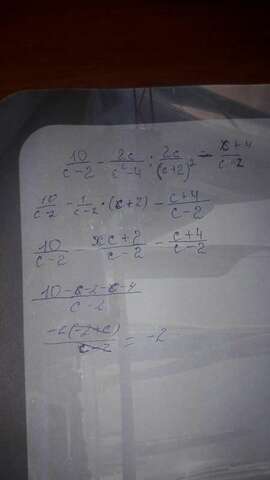 10/(c-2) - 2c/(c²-4) : 2c/(c+2)² - (c+4)/(c-2)
10/(c-2) - 1/(c-2) · (c+2) - (c+4)/(c-2)
10/(c-2) - (c+2)/(c-2) - (c+4)/(c-2)
(10-c-2-c-4)/(c-2)
-2(-2+c)/(c-2) = -2